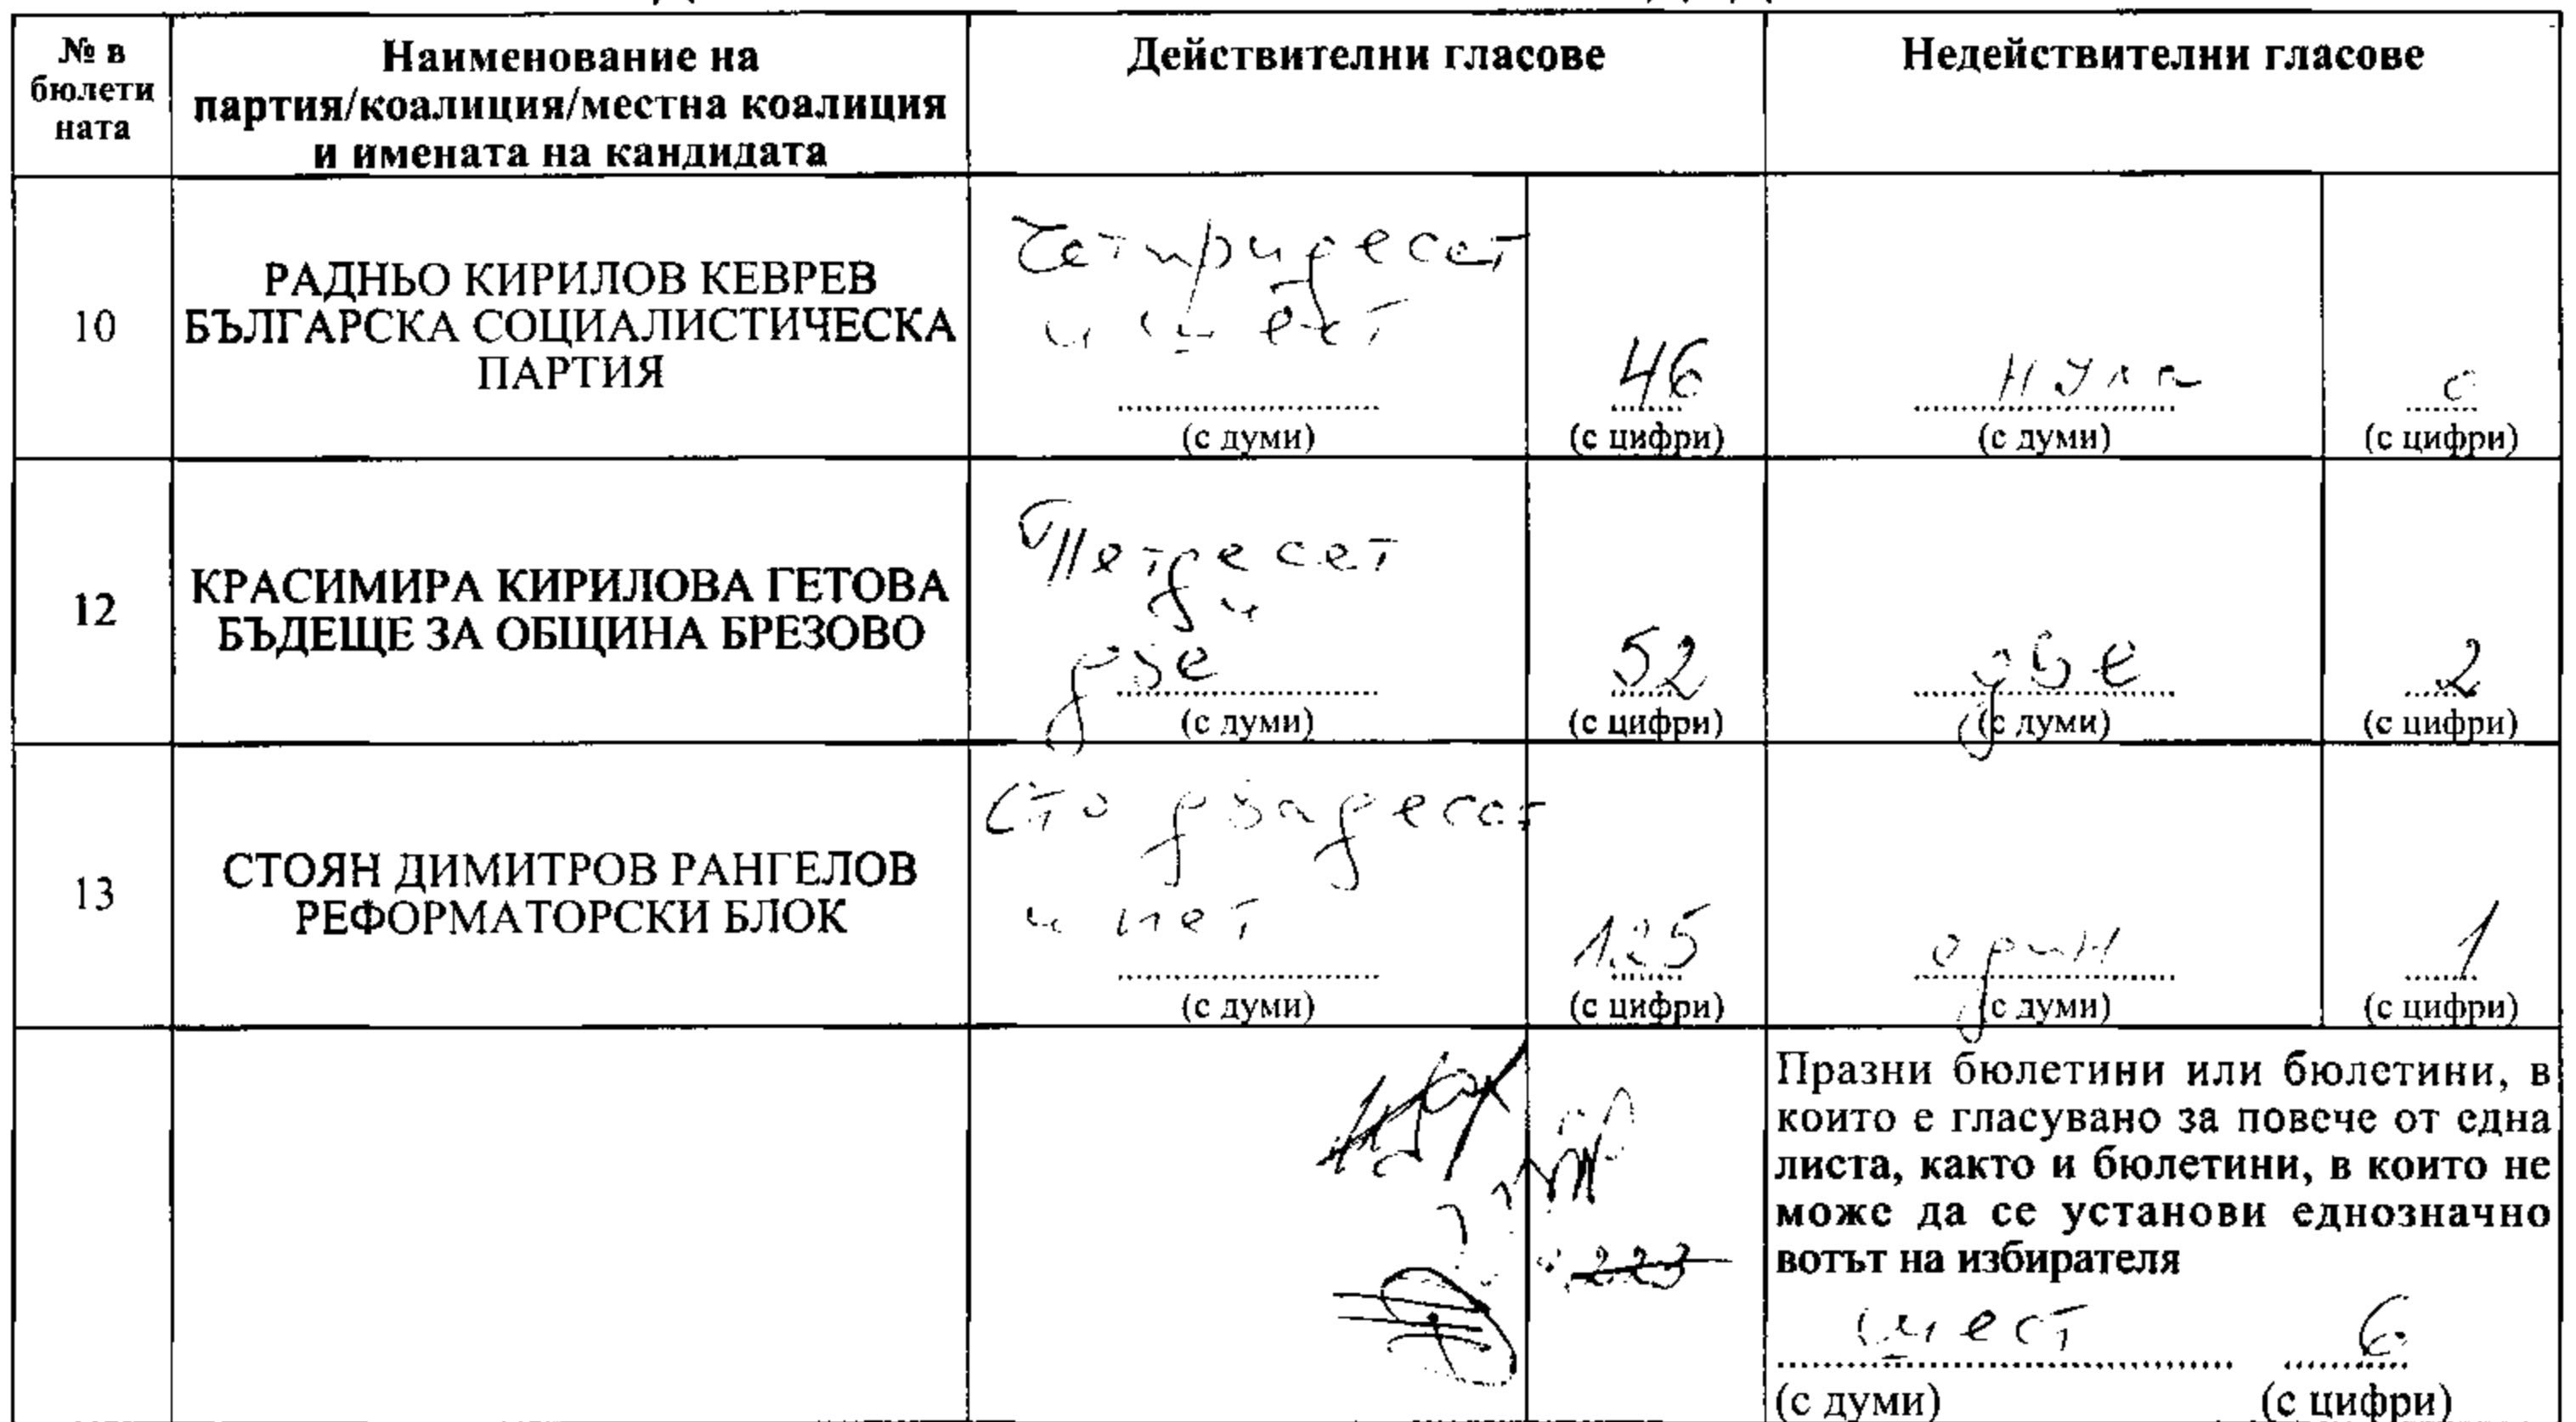 № в бюлети ната
Наименование на партия/коалиция/местна коалиция и имената на кандидата
Действителни гласове
Недействителни гласове
10
РАДНЬО КИРИЛОВ КЕВРЕВ
БЪЛГАРСКА СОЦИАЛИСТИЧЕСКА
ПАРТИЯ
Четиридесет
и шест
(с думи)
46
(с цифри)
нула
(с думи)
0
(с цифри)
12
КРАСИМИРА КИРИЛОВА ГЕТОВА
БЪДЕЩЕ ЗА ОБЩИНА БРЕЗОВО
Петдесет
и
две
(с думи)
52
(с цифри)
две
(с думи)
2
(с цифри)
13
СТОЯН ДИМИТРОВ РАНГЕЛОВ
РЕФОРМАТОРСКИ БЛОК
Сто двадесет
и пет
(с думи)
125
(с цифри)
один
(с думи)
1
(с цифри)
223
Празни бюлетини или бюлетини, в
които е гласувано за повече от една
листа, както и бюлетини, в които не
може да се установи еднозначно
вотът на избирателя
шест
6
(с думи)
(с цифри)